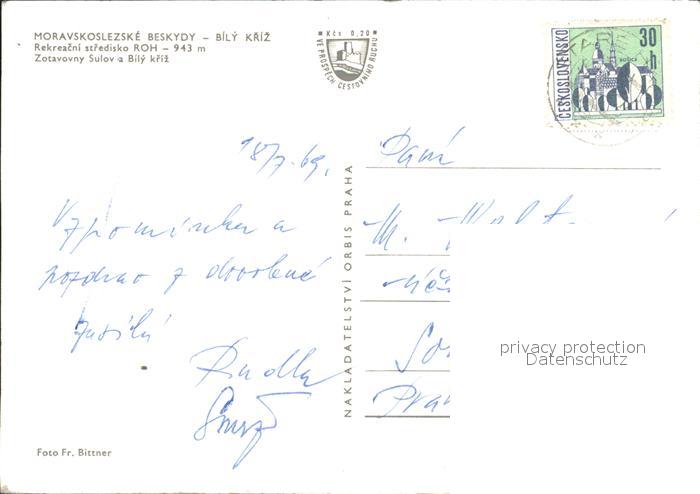 MORAVSKOSLEZSKÉ BESKYDY – BÍLÝ KŘÍŽ
Rekreační středisko ROH – 943 m
Zotavovny Sulov a Bílý kříž
Kčs 0,20
VE PROSPĚCH CESTOVNÍHO RUCHU
ČESKOSLOVENSKO
30 h
KOŠICE
18/7.69.
Vzpomínku a
pozdrav z dovolené
zasílá
NAKLADATELSTVÍ ORBIS PRAHA
Paní
M.
privacy protection
Datenschutz
Foto Fr. Bittner